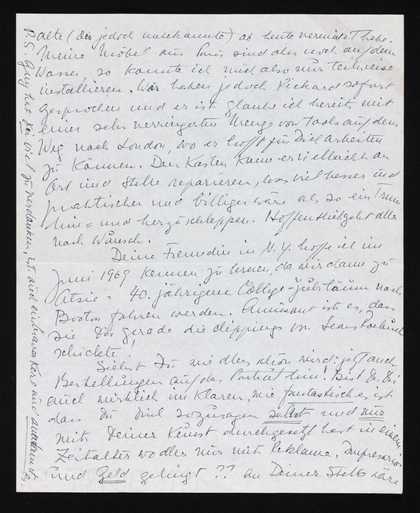 alte (der jedoch unbekannte) ab heute vermietet habe.
Meine Möbel aus Paris sind aber noch auf dem
Wasser, so konnte ich mich also nur teilweise
installieren. Wir haben jedoch Richard sofort
gesprochen und er ist glaube ich bereits mit
einer sehr verringerten Menge von tools auf dem
Weg nach London, wo er hofft für Dich arbeiten
zu können. Den Kasten kann er vielleicht an
Ort und Stelle reparieren, was viel besser und
praktischer und billiger wäre als so ein Trum
hin= und herzuschleppen. Hoffentlich geht alles
nach Wunsch.
Deine Freundin in N.Y. hoffe ich im
Juni 1969 kennen zu lernen, da wir dann zu
40. jährigene College-Jubiläum nach
Boston fahren werden. Amüsant ist es, dass
sie Dir gerade die clippings von
schickte.
Siehst Du wie alles schön wird: jetzt auch
Bestellungen auf das Porträt hin! Bist Du Dir
auch wirklich im Klaren, wie fantastisch es ist
dass Du Dich sozusagen selbst und nur
mit Deiner Kunst durchgesetzt hast in einem
Zeitalter wo alles nur mit Reklame, Impresario
und Geld gelingt ?? An Deiner Stelle wäre
P.S. Guy hat Dir viel zu verdanken, ist auch und